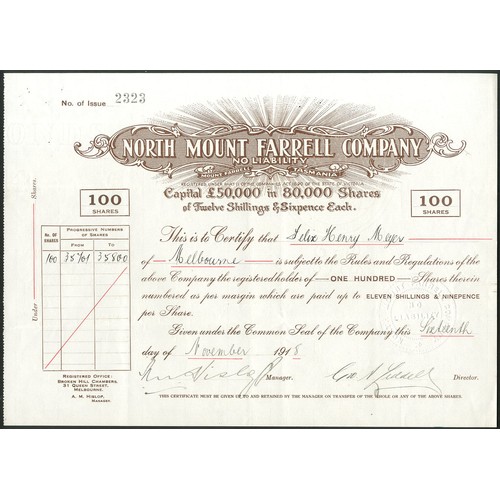 No. of Issue 2323
NORTH MOUNT FARRELL COMPANY
NO LIABILITY
MOUNT FARRELL TASMANIA
REGISTERED UNDER PART II OF THE COMPANIES ACT 1890 OF THE STATE OF VICTORIA.
Capital £50,000 in 80,000 Shares
of Twelve Shillings & Sixpence Each.
100 SHARES
100 SHARES
Shares.
Under
No. OF SHARES
PROGRESSIVE NUMBERS OF SHARES
FROM TO
100 35701 35800
This is to Certify that Felix Henry Meyer
of Melbourne is subject to the Rules and Regulations of the
above Company the registered holder of ONE HUNDRED Shares therein
numbered as per margin which are paid up to ELEVEN SHILLINGS & NINEPENCE
per Share.
Given under the Common Seal of the Company this Sixteenth
day of November 1918
Manager.
Director.
REGISTERED OFFICE:
BROKEN HILL CHAMBERS,
31 QUEEN STREET,
MELBOURNE.
A. M. HISLOP,
MANAGER.
THIS CERTIFICATE MUST BE GIVEN UP TO AND RETAINED BY THE MANAGER ON TRANSFER OF THE WHOLE OR ANY OF THE ABOVE SHARES.